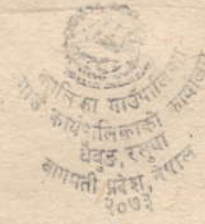 कालिका गाउँपालिका
गाउँ कार्यपालिकाको कार्यालय
धैवुङ, रसुवा
बागमती प्रदेश, नेपाल
२०७३